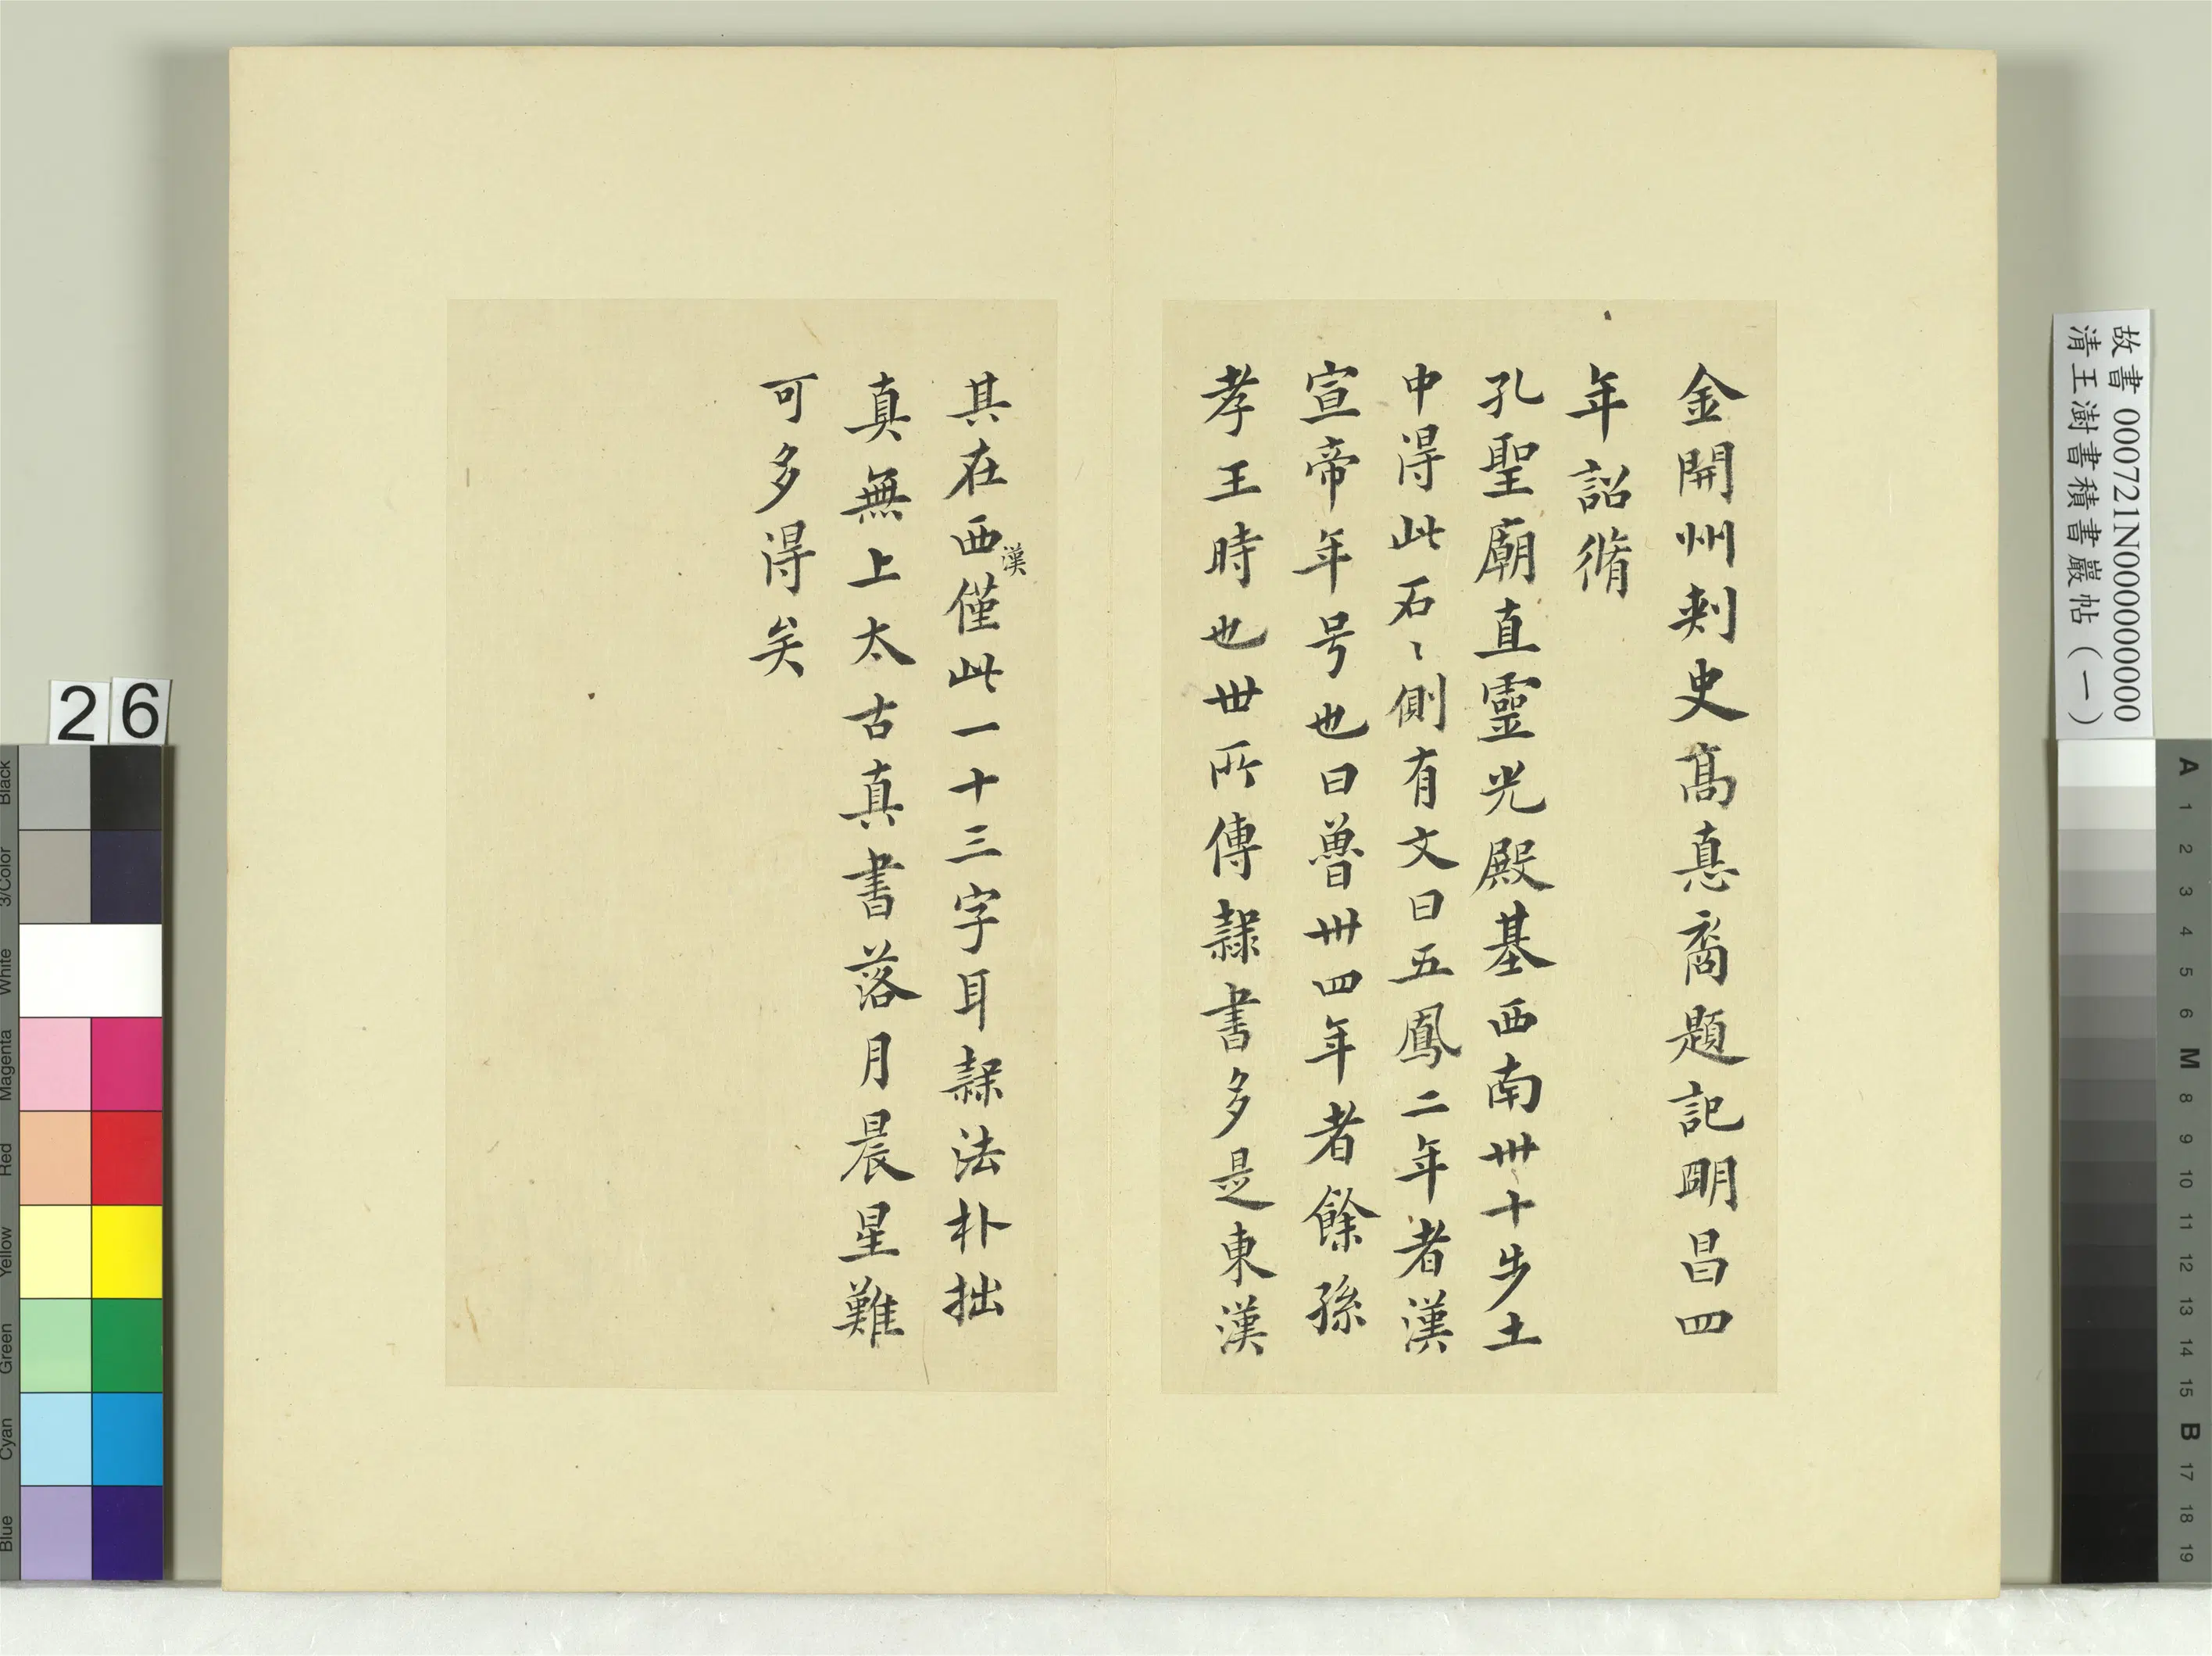 金開州刺史高悳裔題記明昌四
年詔脩
孔聖廟直靈光殿基西南卅十步土
中得此石〻側有文曰五鳳二年者漢
宣帝年号也曰魯卅四年者餘孫
孝王時也世所傳隸書多是東漢
其在西漢僅此一十三字耳隸法朴拙
真無上太古真書落月晨星難
可多得矣
故書 000721N000000000
清王澍書積書巖帖（一）
26
Black
3/Color
White
Magenta
Red
Yellow
Green
Cyan
Blue
A
1
2
3
4
5
6
M
8
9
10
11
12
13
14
15
B
17
18
19